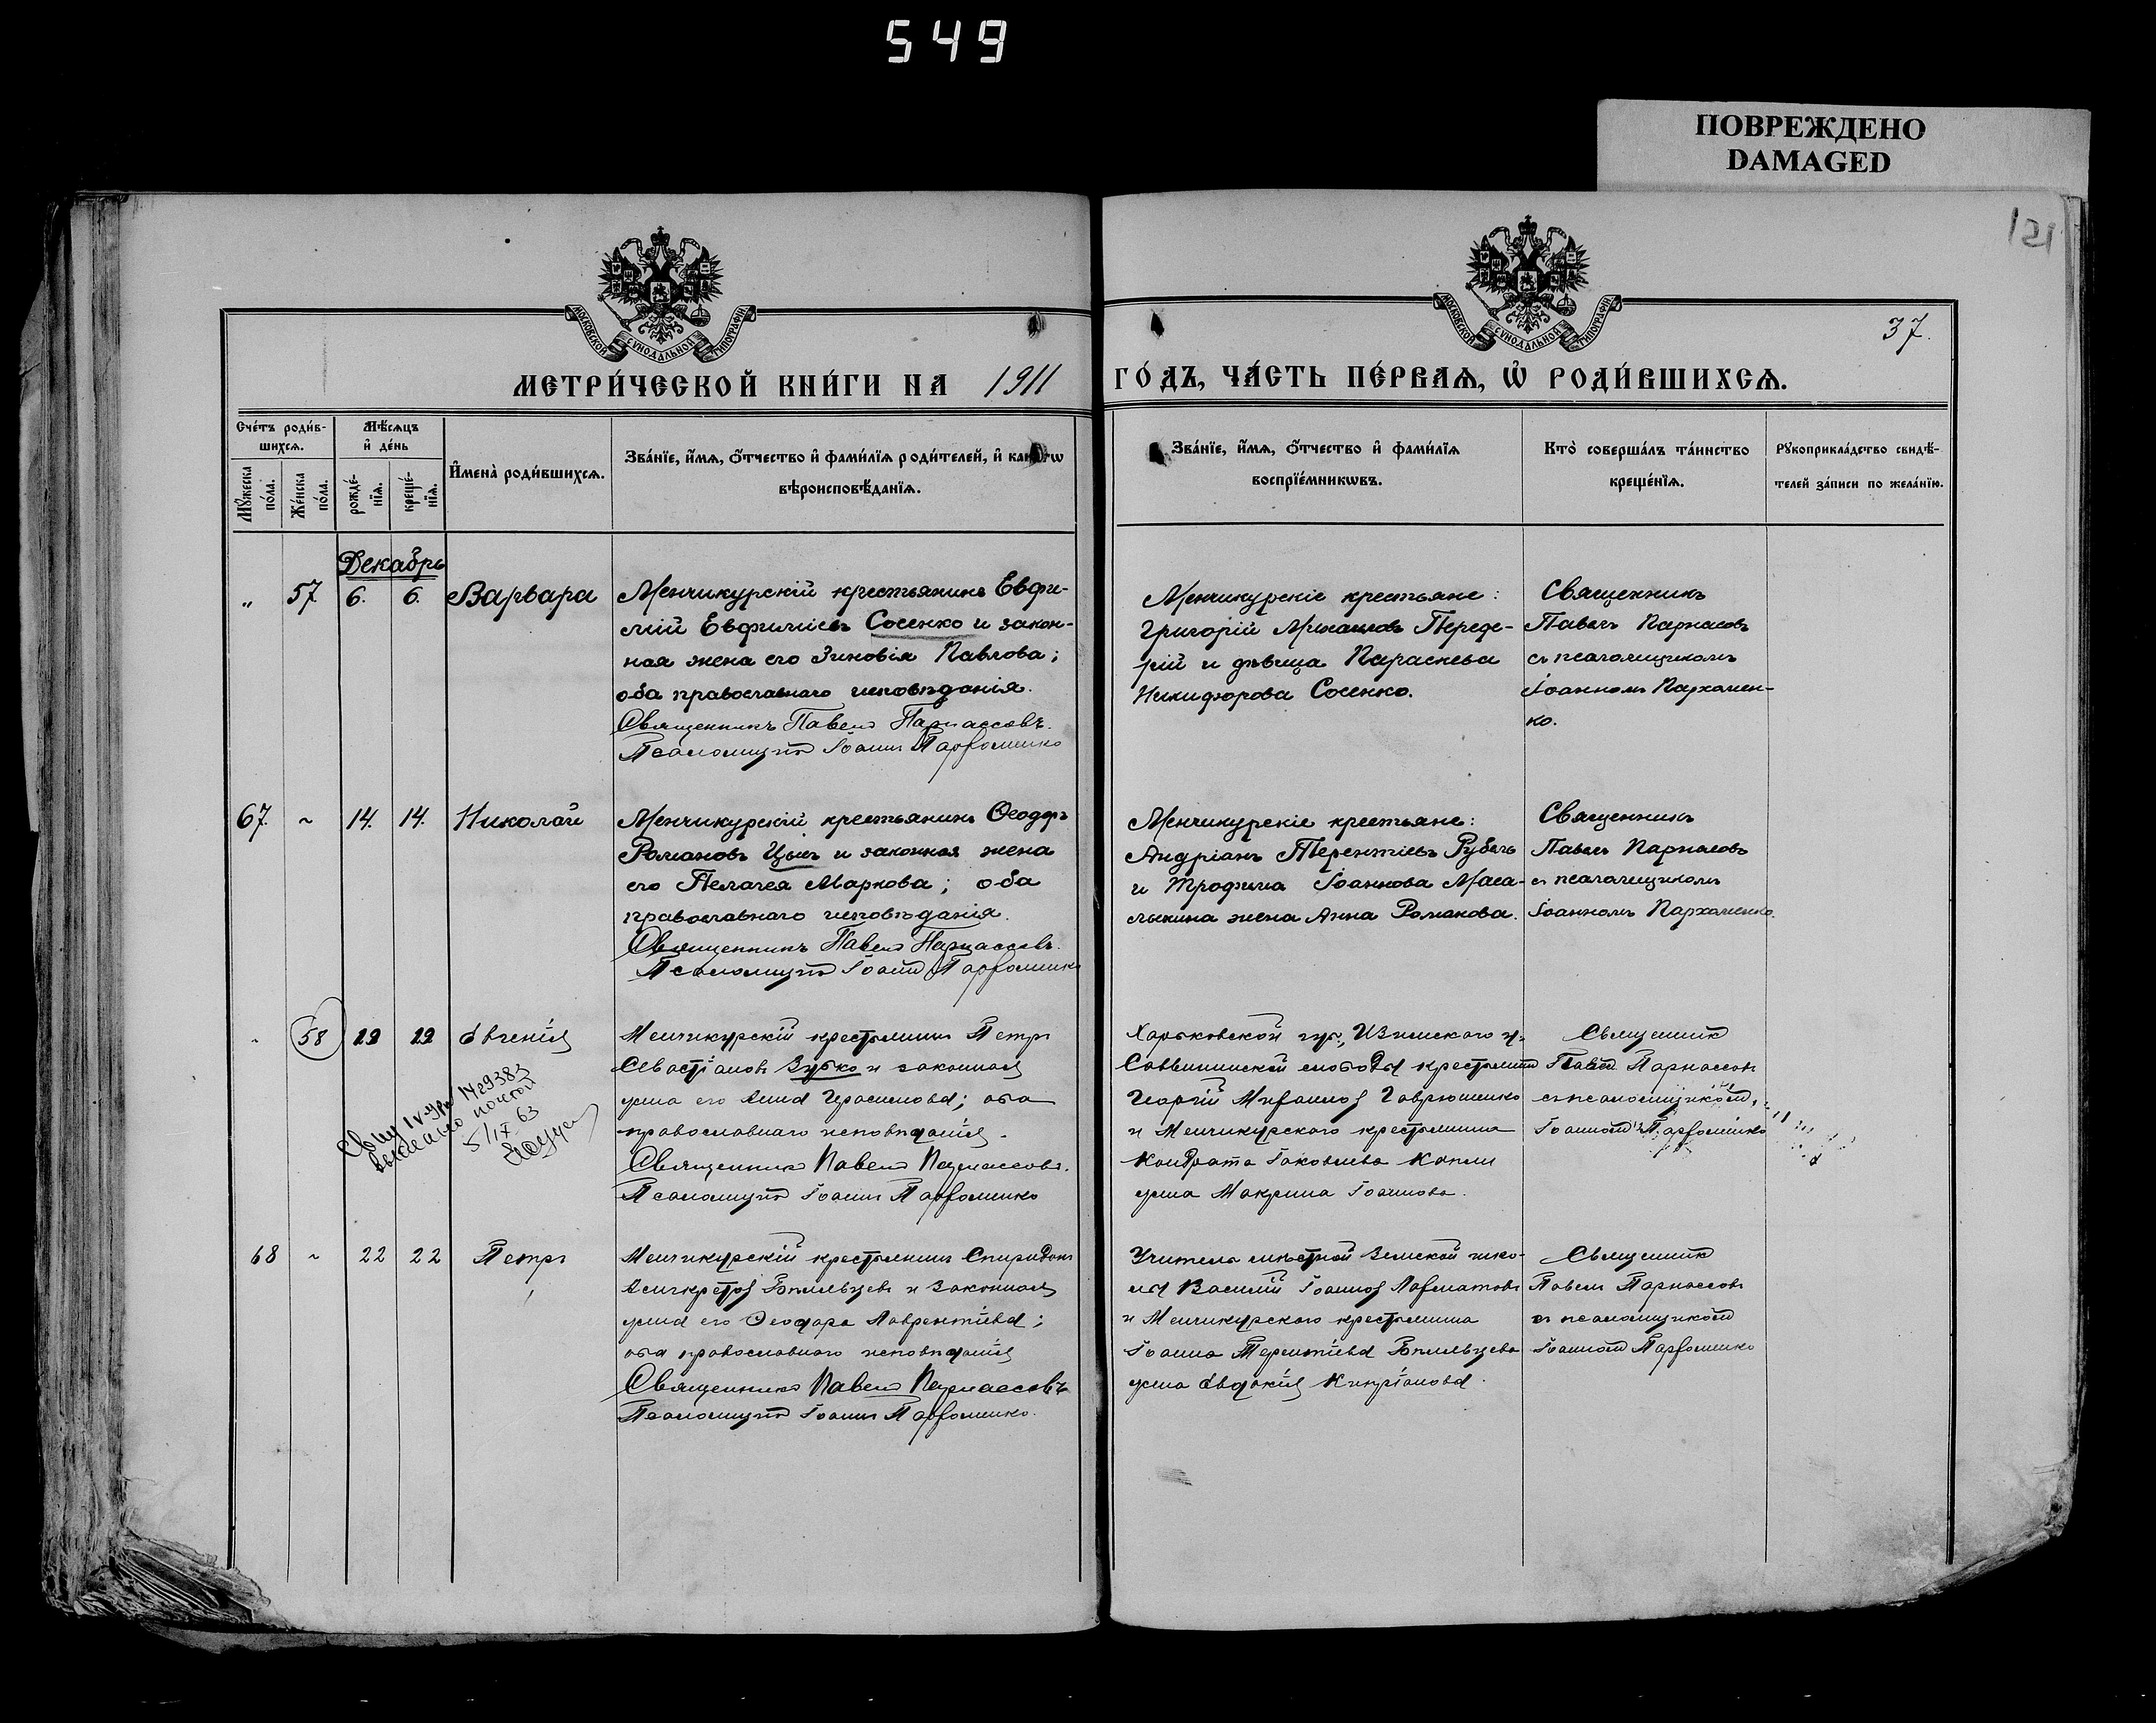 549
ПОВРЕЖДЕНО
DAMAGED
121
37.
МОСКОВСКОЙ СѴНОДАЛЬНОЙ ТИПОГРАФІИ
МОСКОВСКОЙ СѴНОДАЛЬНОЙ ТИПОГРАФІИ
МЕТРИ́ЧЕСКОЙ КНИ́ГИ НА 1911 ГО́ДЪ, ЧА́СТЬ ПЕ́РВАѦ, Ѡ РОДИ́ВШИХСѦ.
Сче́тъ роди́в-
шихсѧ.
Мꙋ́жеска по́ла.
Же́нска по́ла.
Мѣ́сѧцъ
и҆ де́нь
рожде́-нїѧ.
креще́-нїѧ.
И҆мена̀ роди́вшихсѧ.
Зва́нїе, и҆́мѧ, ѻ҆́тчество и҆ фами́лїѧ роди́телей, и҆ како́гѡ
вѣроисповѣ́данїѧ.
Зва́нїе, и҆́мѧ, ѻ҆́тчество и҆ фами́лїѧ
воспрїе́мникѡвъ.
Кто̀ соверша́лъ та́инство
креще́нїѧ.
Рꙋкоприкла́дство свидѣ́-
телей за́писи по жела́нїю.
Декабрь
„ 57 6. 6. Варвара
Менчикурскій крестьянинъ Евфи-
мій Евфиміевъ Сосенко и закон-
ная жена его Зиновія Павлова;
оба православнаго исповѣданія.
Священникъ Павелъ Парнассовъ.
Псаломщикъ Іоаннъ Пархоменко
Менчикурскіе крестьяне:
Григорій Михаиловъ Переде-
рій и дѣвица Параскева
Никифорова Сосенко.
Священникъ
Павелъ Парнасовъ
съ псаломщикомъ
Іоанномъ Пархомен-
ко.
67. ~ 14. 14. Николай
Менчикурскій крестьянинъ Ѳеодоръ
Романовъ Цысь и законная жена
его Пелагея Маркова; оба
православнаго исповѣданія.
Священникъ Павелъ Парнассовъ.
Псаломщикъ Іоаннъ Пархоменко
Менчикурскіе крестьяне:
Андріанъ Терентіевъ Рубель
и Трофима Іоаннова Маса-
лыкина жена Анна Романова.
Священникъ
Павелъ Парнасовъ
съ псаломщикомъ
Іоанномъ Пархоменко.
58 19 19 Евгенія
Менчикурскій крестьянинъ Петръ
Севастіановъ Зубко и законная
жена его Анна Герасимова; оба
православнаго исповѣданія.
Священникъ Павелъ Парнассовъ.
Псаломщикъ Іоаннъ Пархоменко
1429383
выслано почтой
5/IX 63
Харьковской губ., Изюмскаго у.
Савинской слободы крестьянинъ
Георгій Михаиловъ Гаврюшенко
и Менчикурскаго крестьянина
Кондрата Іаковлева Капли
жена Макрина Іоаннова.
Священникъ
Павелъ Парнассовъ
съ псаломщикомъ
Іоанномъ Пархоменко
68 ~ 22 22 Петръ
Менчикурскій крестьянинъ Спиридонъ
Асинкретовъ Копыльцевъ и законная
жена его Ѳеодора Лаврентіева;
оба православнаго исповѣданія
Священникъ Павелъ Парнассовъ
Псаломщикъ Іоаннъ Пархоменко.
Учитель мѣстной Земской шко-
лы Василій Іоанновъ Лахматовъ
и Менчикурскаго крестьянина
Іоанна Терентіева Копыльцева
жена Евдокія Кипріанова.
Священникъ
Павелъ Парнассовъ
съ псаломщикомъ
Іоанномъ Пархоменко